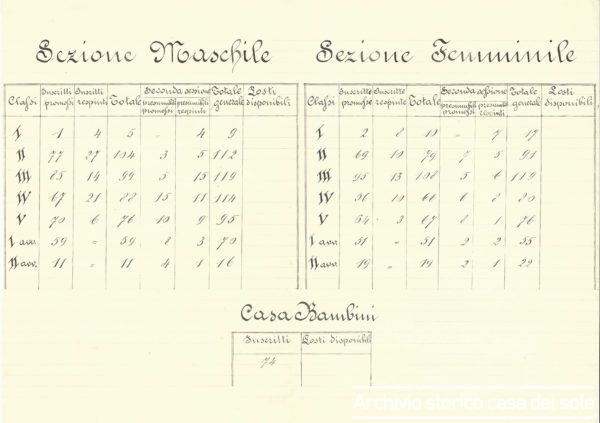 Sezione Maschile
Classi Inscritti promossi Inscritti respinti Totale Seconda sessione presumibili promossi presumibili respinti Totale generale Posti disponibili
I 1 4 5 " 4 9
II 77 27 104 3 5 112
III 85 14 99 5 15 119
IV 67 21 88 15 11 114
V 70 6 76 10 9 95
I avv. 59 " 59 8 3 70
II avv. 11 " 11 4 1 16
Sezione Femminile
Classi Inscritte promosse Inscritte respinte Totale Seconda sessione presumibili promossi presumibili respinti Totale generale Posti disponibili
I 2 8 10 " 7 17
II 69 10 79 7 5 91
III 95 13 108 5 6 119
IV 56 10 66 6 8 80
V 64 3 67 8 1 76
I avv. 51 " 51 2 2 55
II avv. 19 " 19 2 1 22
Casa Bambini
Inscritti Posti disponibili
74
Archivio storico casa del sole